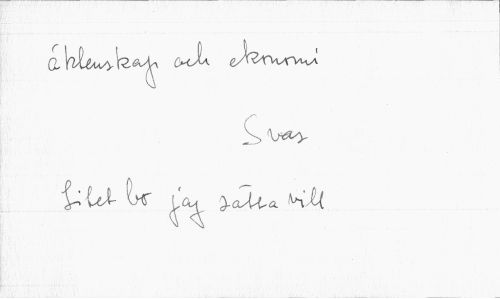 äktenskap och ekonomi
Svar
Litet bo jag sätta vill